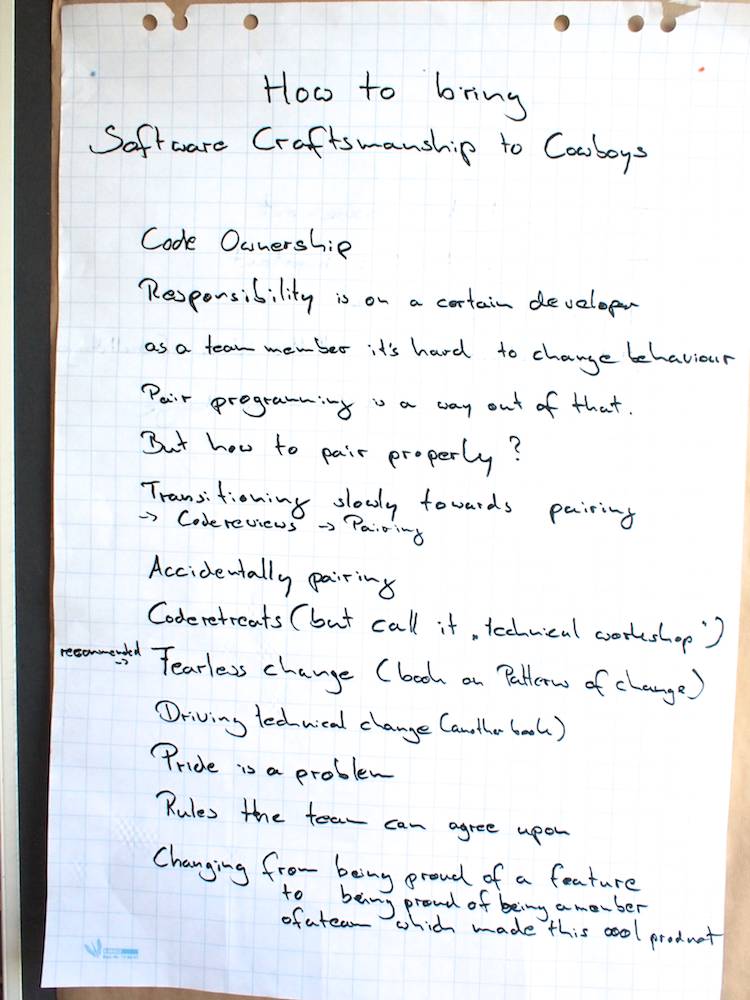 How to bring
Software Craftsmanship to Cowboys
Code Ownership
Responsibility is on a certain developer
as a team member it's hard to change behaviour
Pair programming is a way out of that.
But how to pair properly?
Transitioning slowly towards pairing
-> Codereviews -> Pairing
Accidentally pairing
Coderetreats (but call it „technical workshop")
recommended
-> Fearless change (book on Patterns of change)
Driving technical change (another book)
Pride is a problem
Rules the team can agree upon
Changing from being proud of a feature
to being proud of being a member
of a team which made this cool product